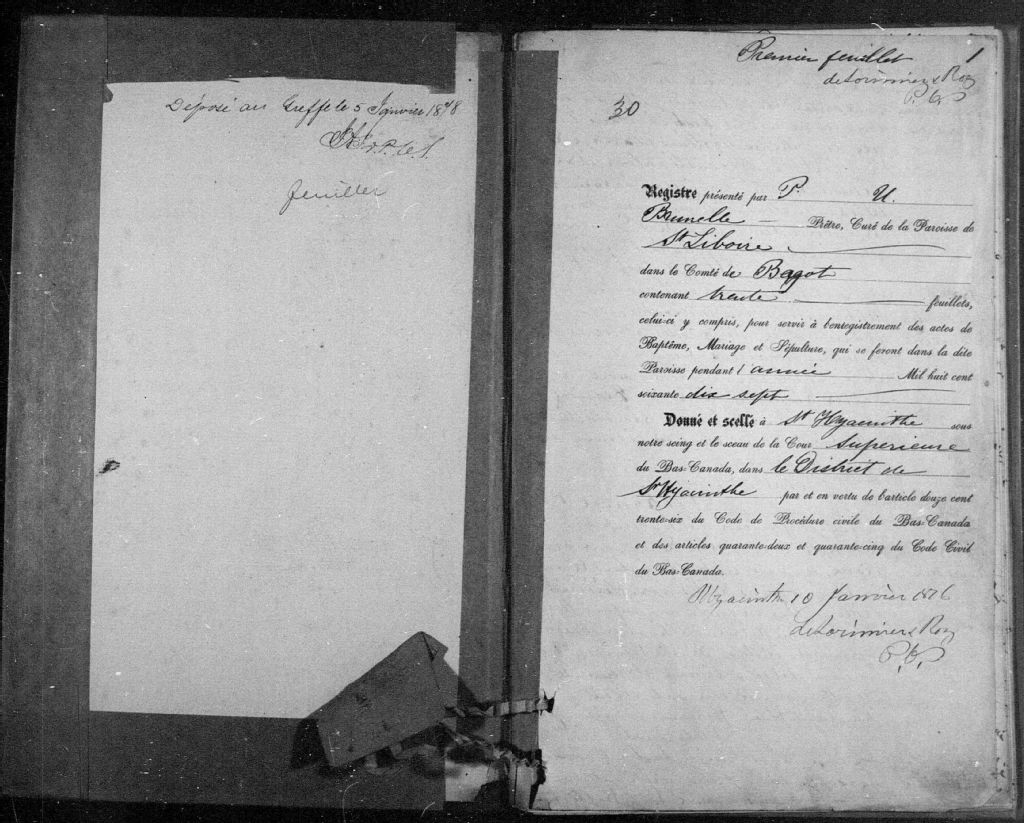 Déposé au Greffe le 5 Janvier 1878
feuillet
Premier feuillet 1
deLorimier & Roy
P. C. S
30
Registre présenté par P. U.
Brunelle — Prêtre, Curé de la Paroisse de
St Liboire
dans le Comté de Bagot
contenant trente feuillets,
celui-ci y compris, pour servir à l'enregistrement des actes de
Baptême, Mariage et Sépulture, qui se feront dans la dite
Paroisse pendant l'année Mil huit cent
soixante dix sept
Donné et scellé à St Hyacinthe sous
notre seing et le sceau de la Cour Superieure
du Bas-Canada, dans le District de
St Hyacinthe par et en vertu de l'article douze cent
trente-six du Code de Procédure civile du Bas-Canada
et des articles quarante-deux et quarante-cinq du Code Civil
du Bas-Canada.
St Hyacinthe 10 Janvier 1876
deLorimier & Roy